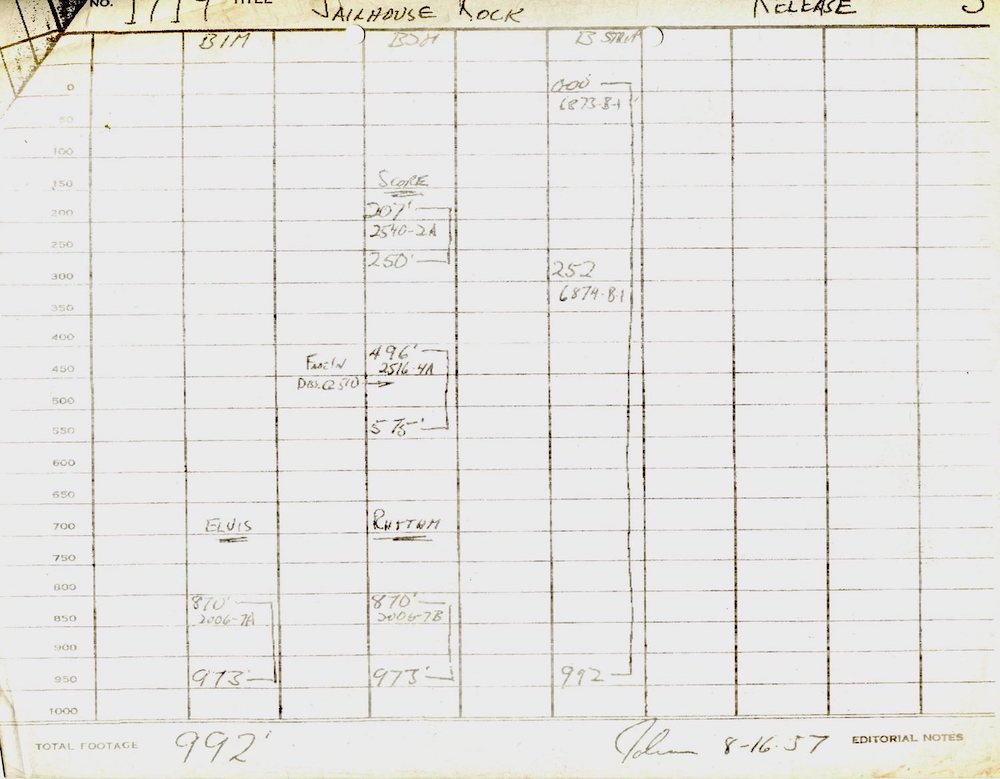 NO. 1719 TITLE JAILHOUSE ROCK RELEASE
B1M B3M
0
50
100
150
200
250
300
350
400
450
500
550
600
650
700
750
800
850
900
950
1000
000'
6873-B-1
SCORE
207'
2540-2A
250'
252
6874-B-1
496'
2516-4A
FADE IN
DISS. @ 510
575'
ELVIS RHYTHM
870' 870'
2006-7A 2006-7B
973' 973' 992
TOTAL FOOTAGE 992' 8-16-57 EDITORIAL NOTES